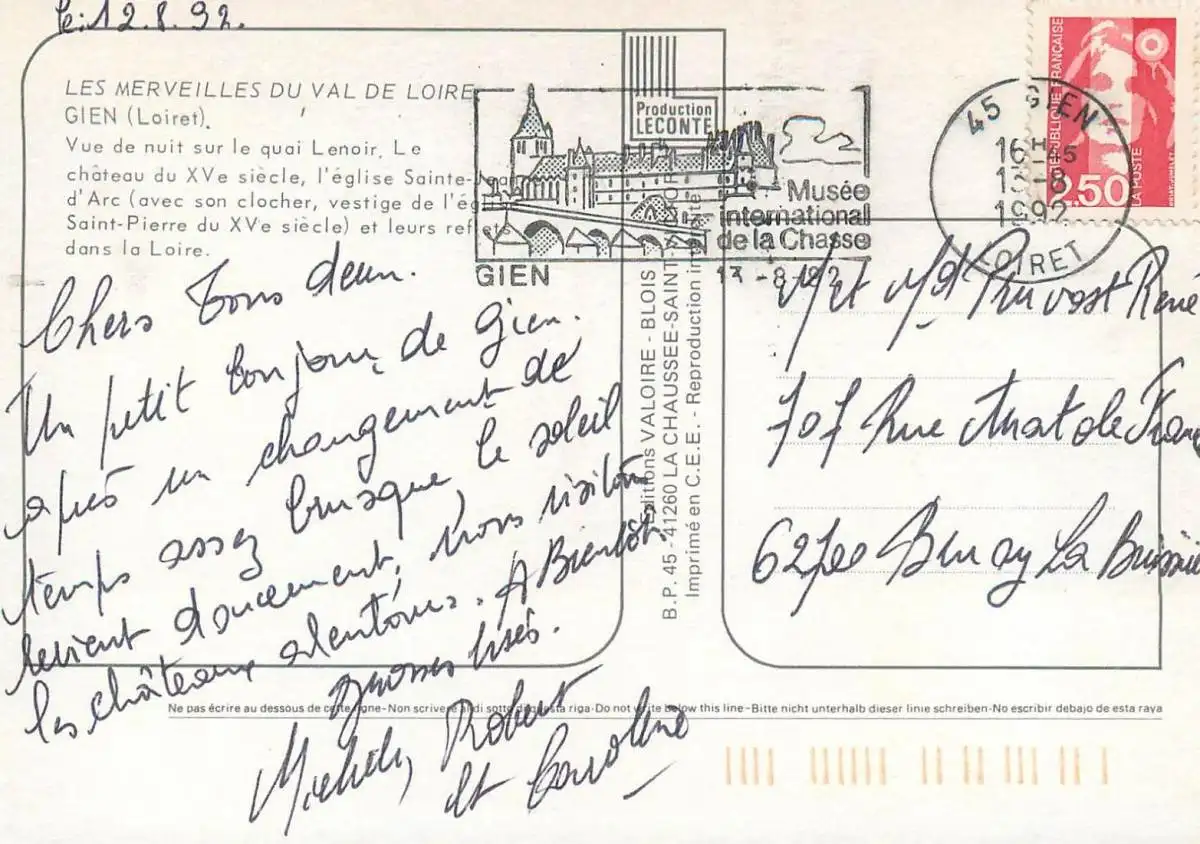 le: 12.8.92.
LES MERVEILLES DU VAL DE LOIRE
GIEN (Loiret).
Vue de nuit sur le quai Lenoir. Le
château du XVe siècle, l'église Sainte-Jeanne
d'Arc (avec son clocher, vestige de l'église
Saint-Pierre du XVe siècle) et leurs reflets
dans la Loire.
Chers Tous deux.
Un petit bonjour de Gien.
après un changement de
temps assez brusque, le soleil
revient doucement, nous visitons
les châteaux alentours. A Bientôt.
grosses bises.
Michel, Robert
et Caroline
Production
LECONTE
Musée
international
de la Chasse
GIEN
13 -8 92
Editions VALOIRE - BLOIS
B.P. 45 - 41260 LA CHAUSSEE-SAINT-VICTOR
Imprimé en C.E.E. - Reproduction interdite
RÉPUBLIQUE FRANÇAISE
2,50
LA POSTE
45 GIEN
16H45
13-8
1992
LOIRET
M et Md Pruvost René
707 Rue Anatole France
62700 Bruay La Buissiè
Ne pas écrire au dessous de cette ligne-Non scrivere al di sotto di questa riga-Do not write below this line-Bitte nicht unterhalb dieser linie schreiben-No escribir debajo de esta raya